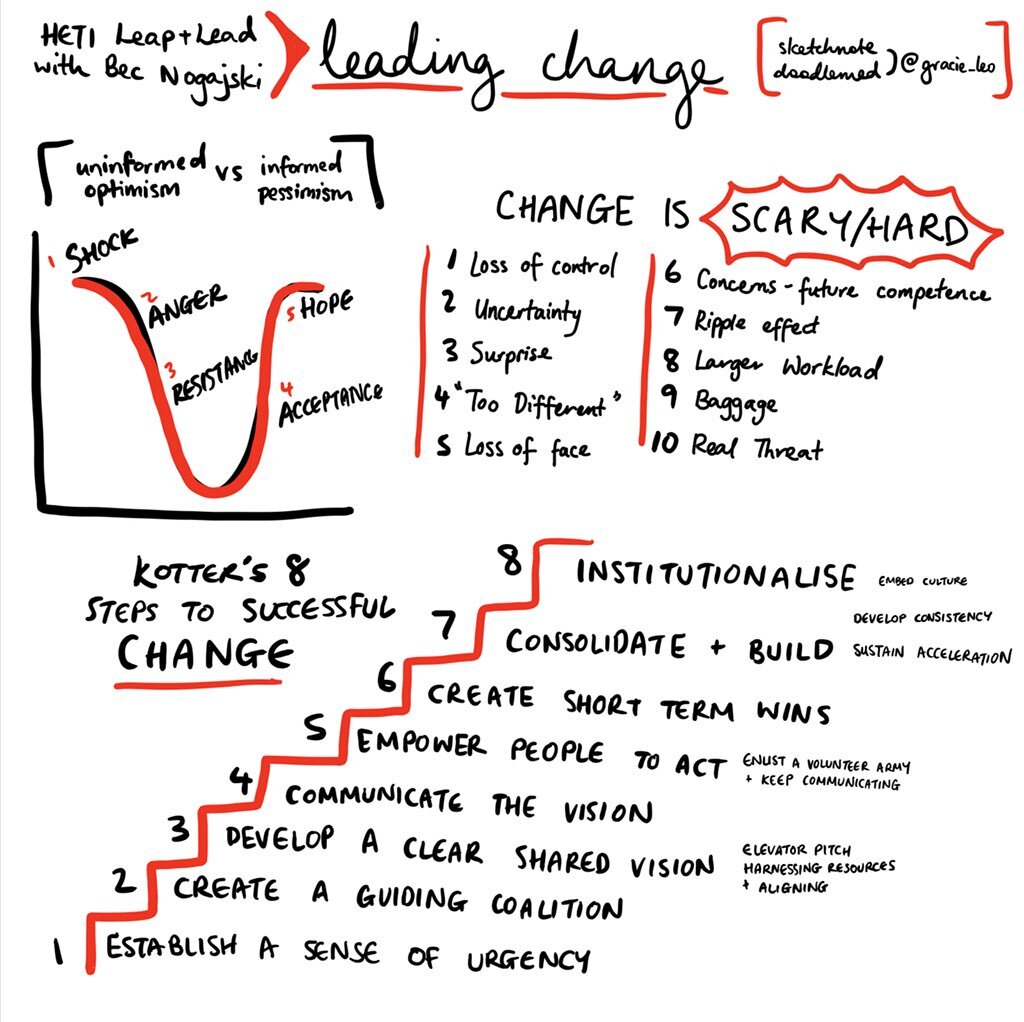 HETI Leap+Lead
with Bec Nogajski
leading change
sketchnote
doodlemed
@gracie_leo
uninformed
optimism
vs
informed
pessimism
1 SHOCK
2 ANGER
3 RESISTANCE
4 ACCEPTANCE
5 HOPE
CHANGE IS SCARY/HARD
1 Loss of control
2 Uncertainty
3 Surprise
4 "Too Different"
5 Loss of face
6 Concerns - future competence
7 Ripple effect
8 Larger Workload
9 Baggage
10 Real Threat
KOTTER'S 8
STEPS TO SUCCESSFUL
CHANGE
8 INSTITUTIONALISE EMBED CULTURE
DEVELOP CONSISTENCY
7 CONSOLIDATE + BUILD SUSTAIN ACCELERATION
6 CREATE SHORT TERM WINS
5 EMPOWER PEOPLE TO ACT ENLIST A VOLUNTEER ARMY
+ KEEP COMMUNICATING
4 COMMUNICATE THE VISION
3 DEVELOP A CLEAR SHARED VISION ELEVATOR PITCH
HARNESSING RESOURCES
+ ALIGNING
2 CREATE A GUIDING COALITION
1 ESTABLISH A SENSE OF URGENCY